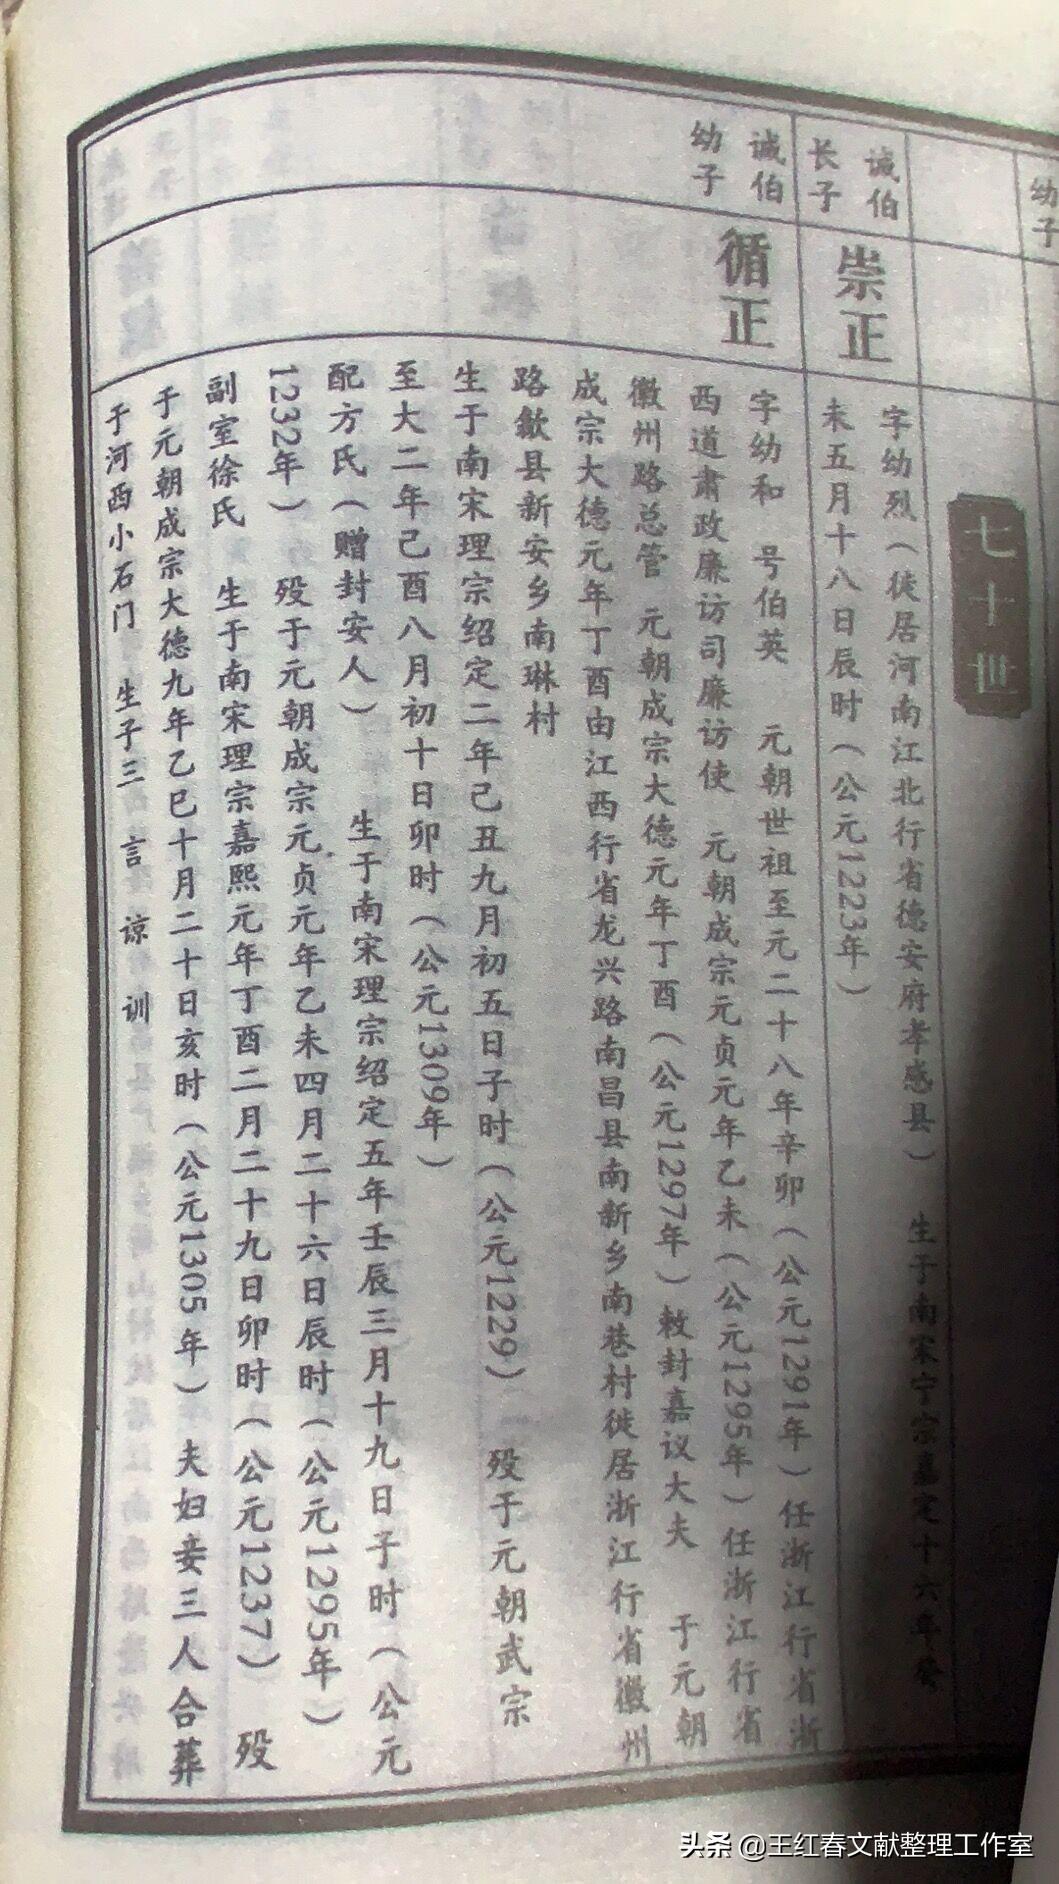 幼子
七十世
诚伯
长子
崇正
字幼烈（徙居河南江北行省德安府孝感县） 生于南宋宁宗嘉定十六年癸
未五月十八日辰时（公元1223年）
诚伯
幼子
循正
字幼和 号伯英 元朝世祖至元二十八年辛卯（公元1291年）任浙江行省浙
西道肃政廉访司廉访使 元朝成宗元贞元年乙未（公元1295年）任浙江行省
徽州路总管 元朝成宗大德元年丁酉（公元1297年）敕封嘉议大夫 于元朝
成宗大德元年丁酉由江西行省龙兴路南昌县南新乡南巷村徙居浙江行省徽州
路歙县新安乡南琳村
生于南宋理宗绍定二年己丑九月初五日子时（公元1229） 殁于元朝武宗
至大二年己酉八月初十日卯时（公元1309年）
配方氏（赠封安人） 生于南宋理宗绍定五年壬辰三月十九日子时（公元
1232年） 殁于元朝成宗元贞元年乙未四月二十六日辰时（公元1295年）
副室徐氏 生于南宋理宗嘉熙元年丁酉二月二十九日卯时（公元1237） 殁
于元朝成宗大德九年乙巳十月二十日亥时（公元1305年） 夫妇妾三人合葬
于河西小石门 生子三 言 谅 训
头条 @王红春文献整理工作室